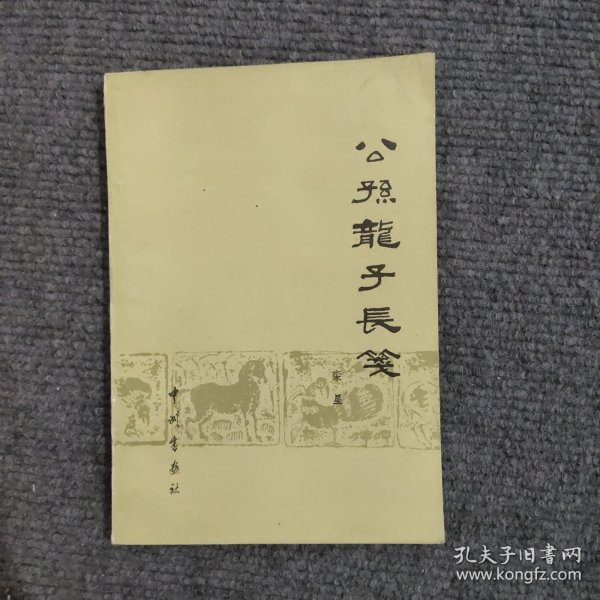 公孫龍子長箋
栾星
中州書画社
孔夫子旧書网
www.kongfz.com